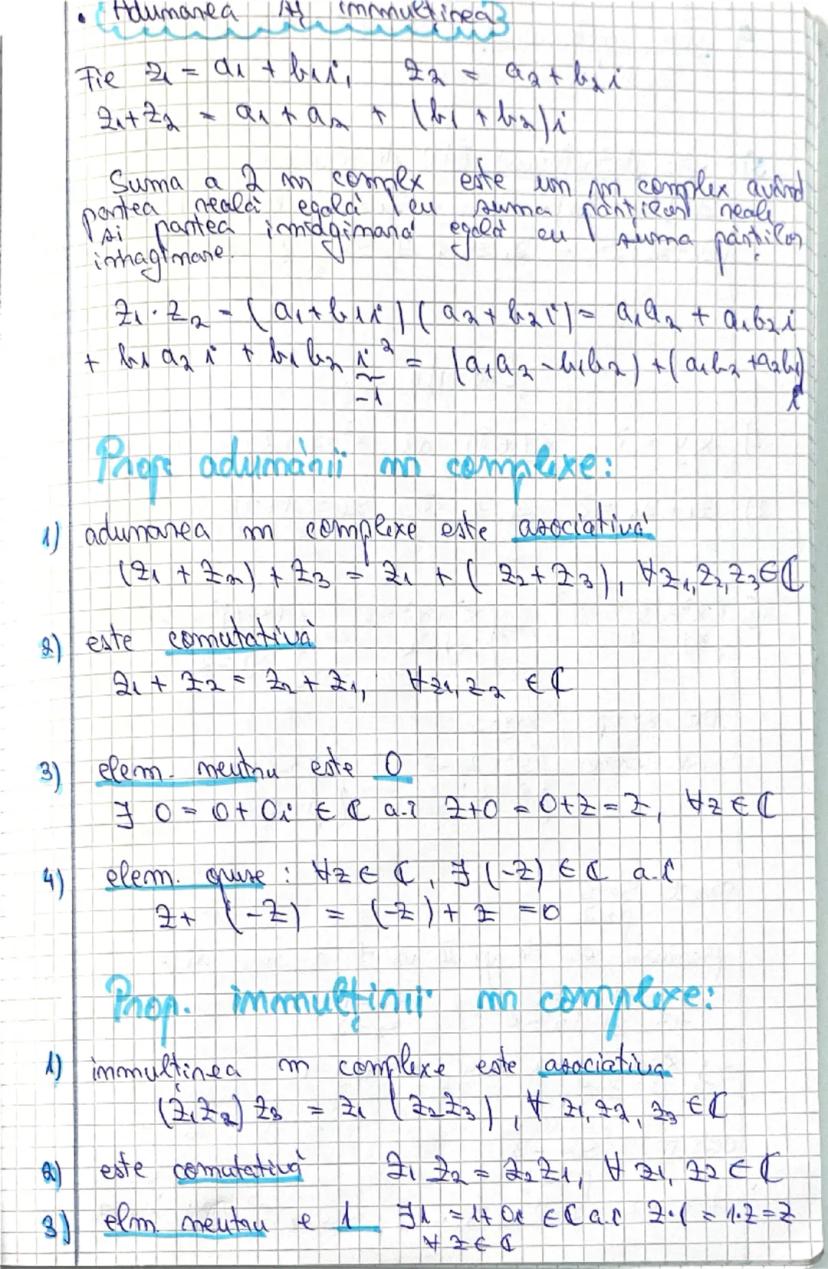 • Adunarea și înmulțirea
Fie z₁ = a₁ + b₁i, z₂ = a₂ + b₂i
z₁+z₂ = a₁ + a₂ + (b₁ + b₂)i
Suma a 2 nr complex este un nr complex având
partea reală egală cu suma părților reale
și partea imaginară egală cu suma părților
imaginare.
z₁ · z₂ = (a₁+b₁i)(a₂+b₂i) = a₁a₂ + a₁b₂i
+ b₁a₂i + b₁b₂ i² = (a₁a₂ - b₁b₂) + (a₁b₂ + a₂b₁)
-1 i
Prop adunării nr complexe:
1) adunarea nr complexe este asociativă
(z₁ + z₂) + z₃ = z₁ + (z₂+z₃), ∀z₁,z₂,z₃∈ℂ
2) este comutativă
z₁ + z₂ = z₂ + z₁, ∀z₁,z₂ ∈ ℂ
3) elem. neutru este 0
∃ 0 = 0 + 0i ∈ ℂ a.î z+0 = 0+z = z, ∀z ∈ ℂ
4) elem. opuse : ∀z ∈ ℂ, ∃ (-z) ∈ ℂ a.î
z + (-z) = (-z) + z = 0
Prop. înmulținii nr complexe:
1) înmulținea nr complexe este asociativa
(z₁z₂) z₃ = z₁ (z₂z₃), ∀ z₁, z₂, z₃ ∈ ℂ
2) este comutativă z₁ z₂ = z₂z₁, ∀ z₁, z₂ ∈ ℂ
3) elm neutru e 1 ∃1 = 1+0i ∈ ℂ a.î z·1 = 1·z = z
∀ z ∈ ℂ